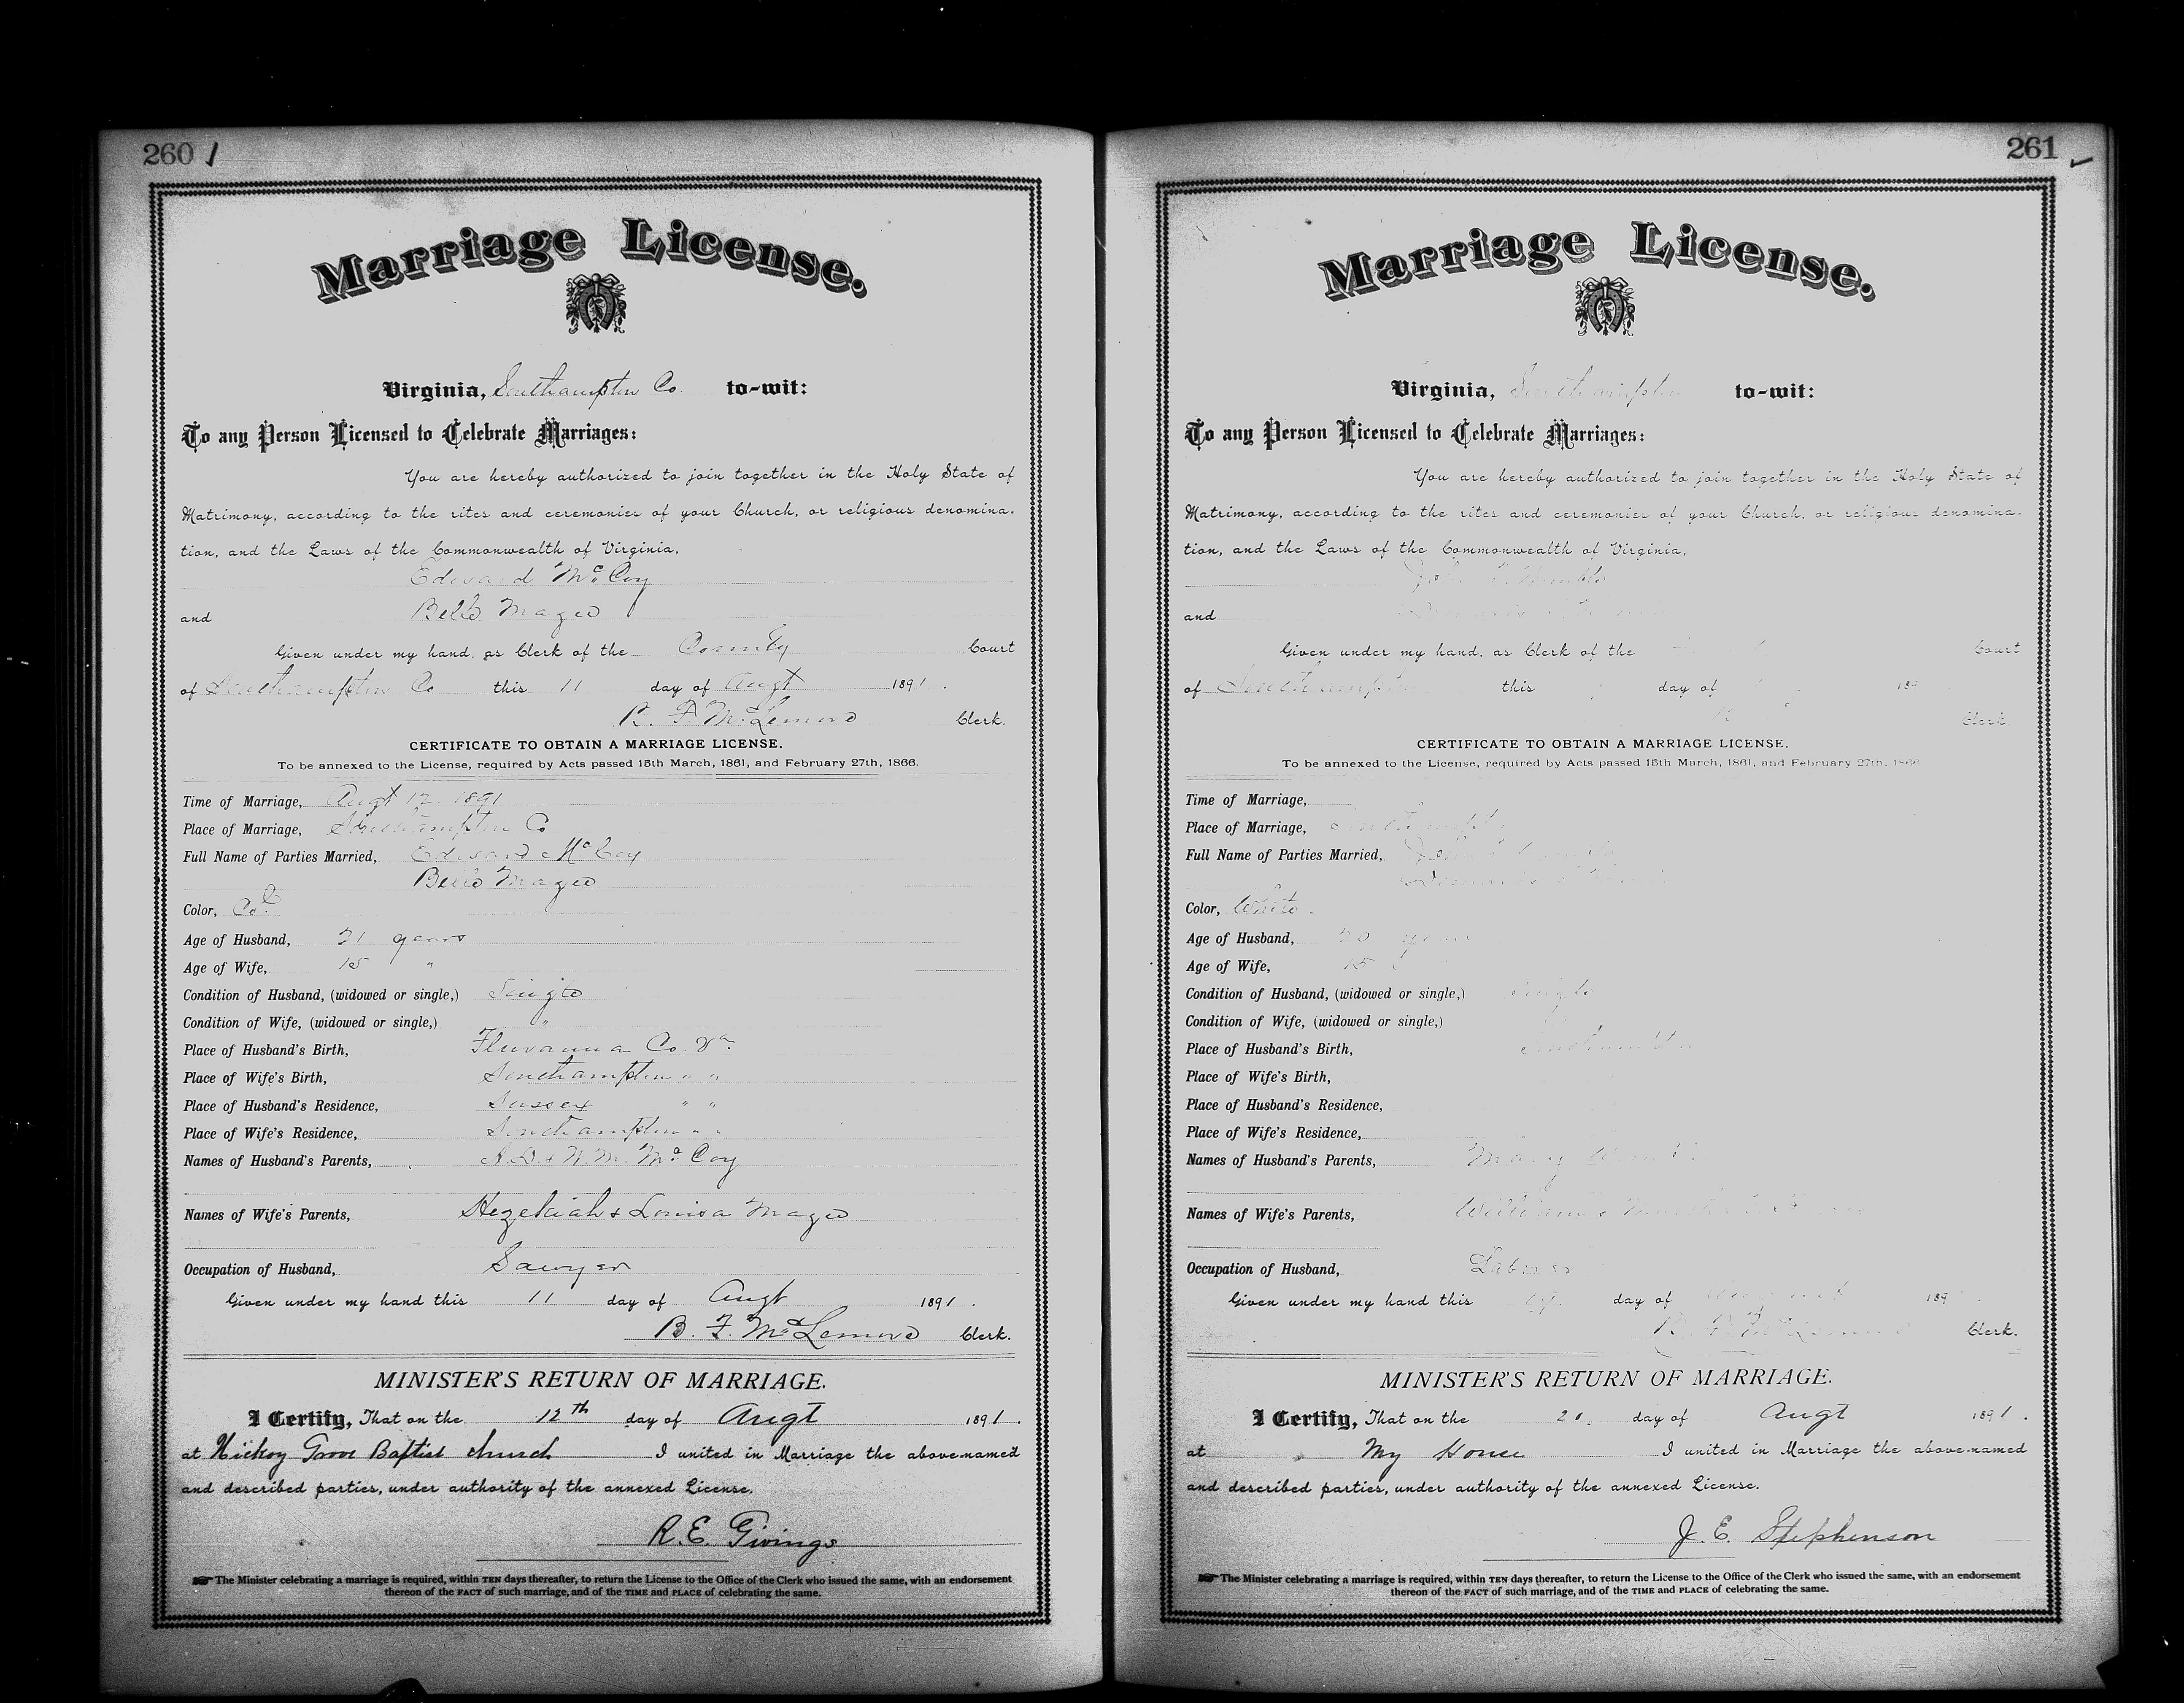 260
Marriage License.
Virginia, Southampton Co. to-wit:
To any Person Licensed to Celebrate Marriages:
You are hereby authorized to join together in the Holy State of
Matrimony, according to the rites and ceremonies of your Church, or religious denomina-
tion, and the Laws of the Commonwealth of Virginia,
Edward McCoy
and Belle Magee
Given under my hand, as Clerk of the County Court
of Southampton Co this 11 day of Augt 1891.
B. F. McLemore Clerk.
CERTIFICATE TO OBTAIN A MARRIAGE LICENSE.
To be annexed to the License, required by Acts passed 15th March, 1861, and February 27th, 1866.
Time of Marriage, Augt 12 1891
Place of Marriage, Southampton Co
Full Name of Parties Married, Edward McCoy
Belle Magee
Color, Cold
Age of Husband, 21 years
Age of Wife, 18 "
Condition of Husband, (widowed or single,) Single
Condition of Wife, (widowed or single,) "
Place of Husband's Birth, Fluvanna Co. Va.
Place of Wife's Birth, Southampton " "
Place of Husband's Residence, Sussex " "
Place of Wife's Residence, Southampton " "
Names of Husband's Parents, McCoy
Names of Wife's Parents, Hezekiah & Louisa Magee
Occupation of Husband, Sawyer
Given under my hand this 11 day of Augt 1891.
B. F. McLemore Clerk.
MINISTER'S RETURN OF MARRIAGE.
I Certify, That on the 12th day of Augt 1891.
at Hickory Grove Baptist church I united in Marriage the above-named
and described parties, under authority of the annexed License.
R. E. Givings
The Minister celebrating a marriage is required, within TEN days thereafter, to return the License to the Office of the Clerk who issued the same, with an endorsement
thereon of the FACT of such marriage, and of the TIME and PLACE of celebrating the same.
261
Marriage License.
Virginia, Southampton to-wit:
To any Person Licensed to Celebrate Marriages:
You are hereby authorized to join together in the Holy State of
Matrimony, according to the rites and ceremonies of your Church, or religious denomina-
tion, and the Laws of the Commonwealth of Virginia,
John
and
Given under my hand, as Clerk of the Court
of Southampton this day of 189
Clerk
CERTIFICATE TO OBTAIN A MARRIAGE LICENSE.
To be annexed to the License, required by Acts passed 15th March, 1861, and February 27th, 1866
Time of Marriage,
Place of Marriage, Southampton
Full Name of Parties Married, John
Color, White
Age of Husband, years
Age of Wife,
Condition of Husband, (widowed or single,) Single
Condition of Wife, (widowed or single,)
Place of Husband's Birth, Southampton
Place of Wife's Birth,
Place of Husband's Residence,
Place of Wife's Residence,
Names of Husband's Parents, Mary
Names of Wife's Parents, William &
Occupation of Husband, Laborer
Given under my hand this day of August 189
B. F. McLemore Clerk.
MINISTER'S RETURN OF MARRIAGE.
I Certify, That on the 20. day of Augt 1891.
at My House I united in Marriage the above-named
and described parties, under authority of the annexed License.
J. E. Stephenson
The Minister celebrating a marriage is required, within TEN days thereafter, to return the License to the Office of the Clerk who issued the same, with an endorsement
thereon of the FACT of such marriage, and of the TIME and PLACE of celebrating the same.